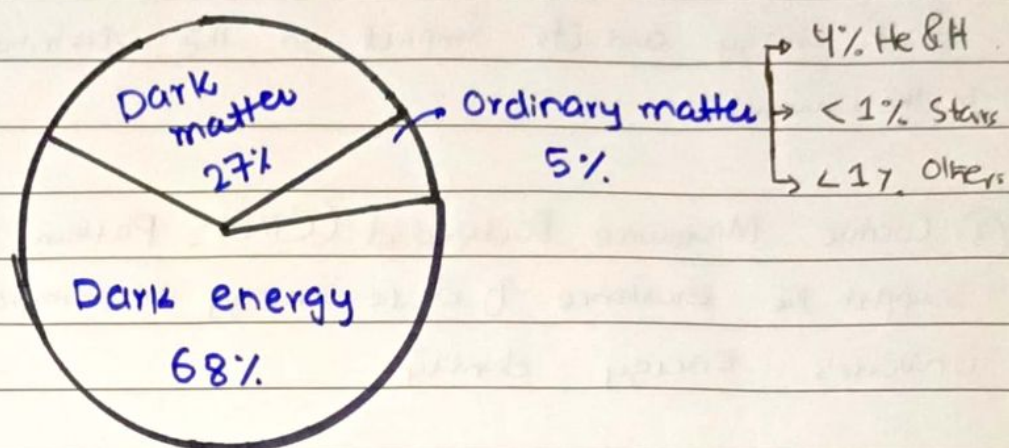 Dark
matter
27%
Ordinary matter
5%
4% He & H
< 1% Stars
< 1% Others
Dark energy
68%